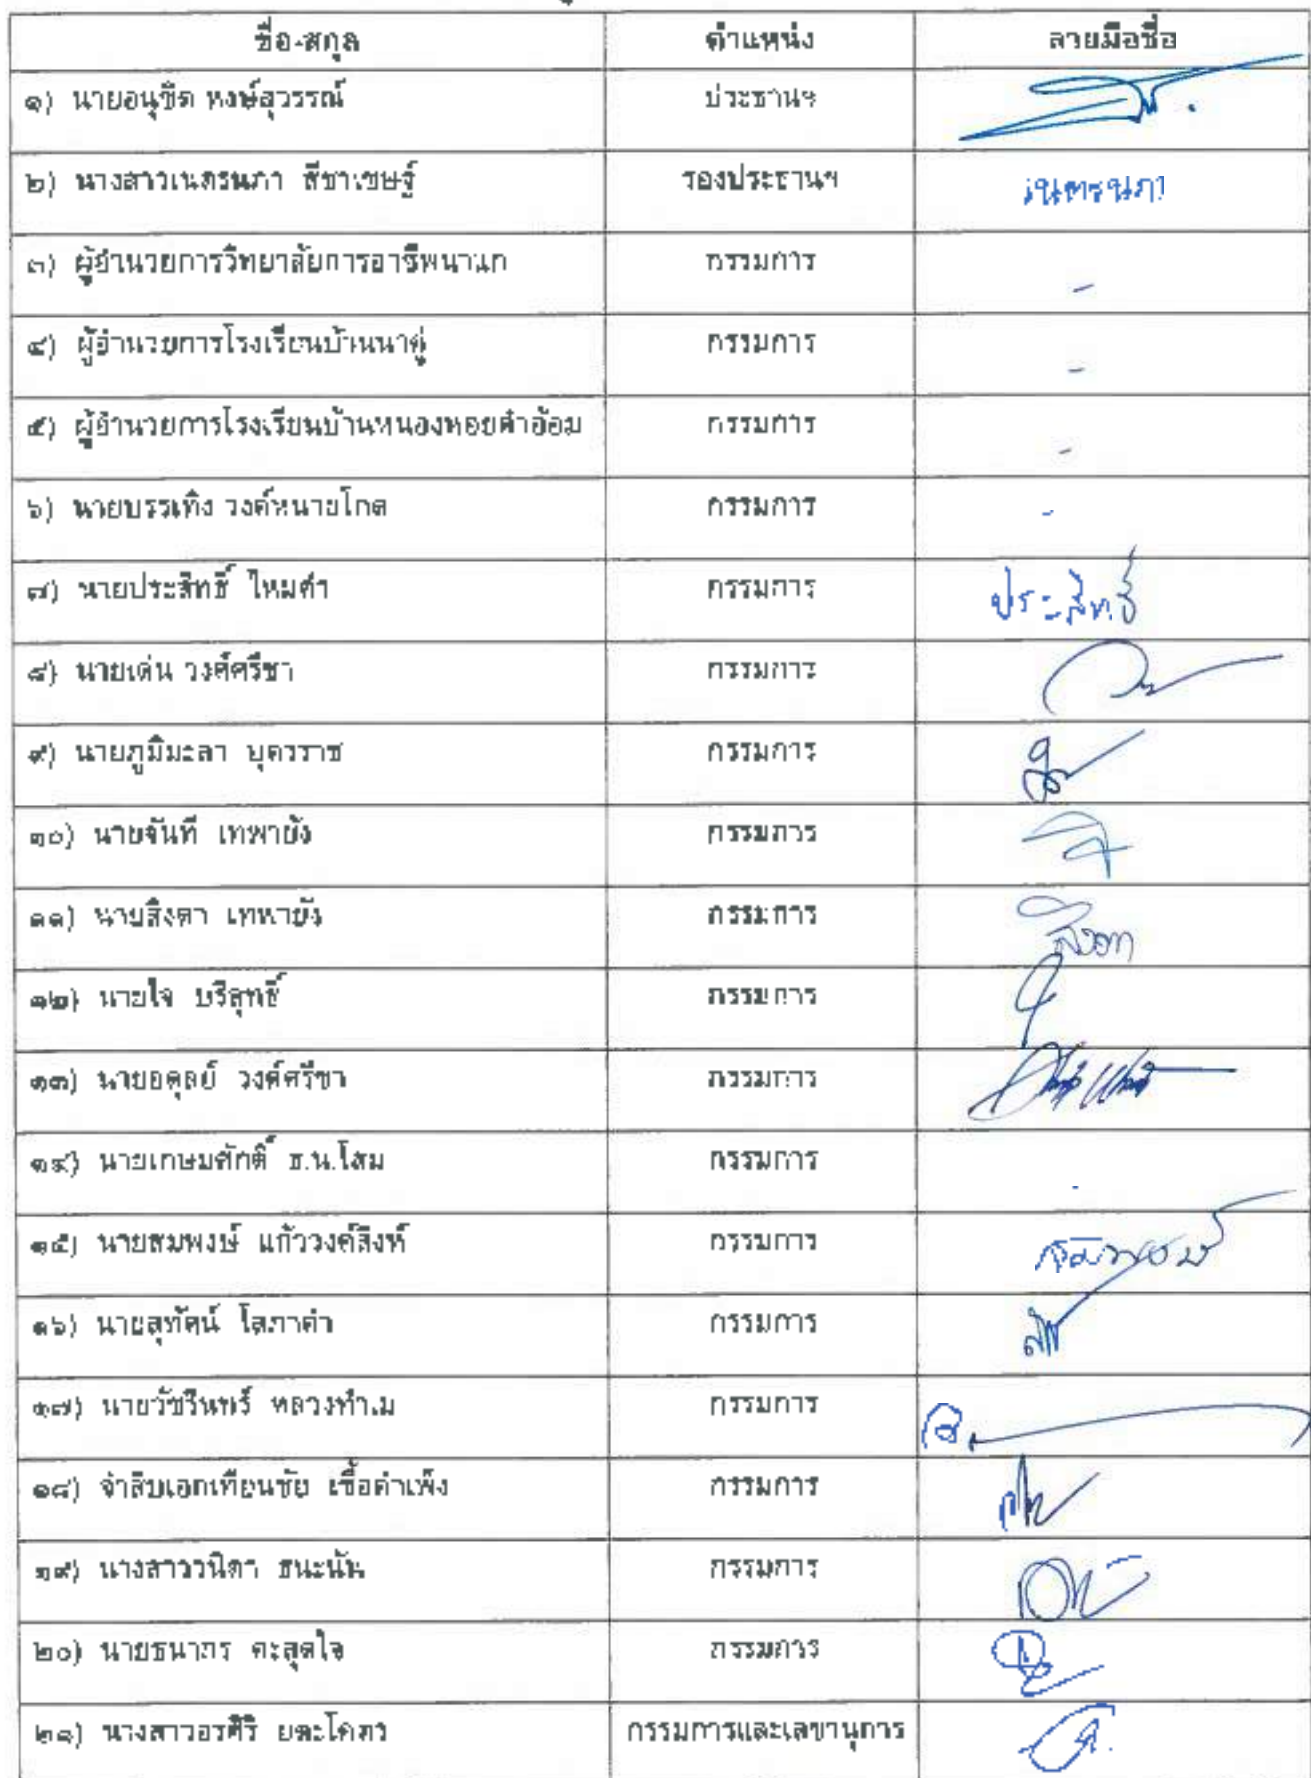 ชื่อ-สกุล ตำแหน่ง ลายมือชื่อ
๑) นายอนุชิต หงษ์สุวรรณ์ ประธานฯ
๒) นางสาวเนตรนภา สีชาเชษฐ์ รองประธานฯ เนตรนภา
๓) ผู้อำนวยการวิทยาลัยการอาชีพนาแก กรรมการ -
๔) ผู้อำนวยการโรงเรียนบ้านนาคู่ กรรมการ -
๕) ผู้อำนวยการโรงเรียนบ้านหนองหอยคำอ้อม กรรมการ -
๖) นายบรรเทิง วงค์หนายโกด กรรมการ -
๗) นายประสิทธิ์ ใหมคำ กรรมการ ประสิทธิ์
๘) นายเด่น วงศ์ศรีชา กรรมการ
๙) นายภูมิมะลา บุดรราช กรรมการ
๑๐) นายจันที เทพายัง กรรมการ
๑๑) นายสิงดา เทพายัง กรรมการ
๑๒) นายใจ บริสุทธิ์ กรรมการ
๑๓) นายอดุลย์ วงค์ศรีชา กรรมการ
๑๔) นายเกษมศักดิ์ ธ.น.โสม กรรมการ -
๑๕) นายสมพงษ์ แก้ววงค์สิงห์ กรรมการ สมพงษ์
๑๖) นายสุทัศน์ โสภาคำ กรรมการ
๑๗) นายวัชรินทร์ หลวงทำเม กรรมการ
๑๘) จ่าสิบเอกเทียนชัย เชื้อคำเพ็ง กรรมการ
๑๙) นางสาววนิดา ธนะนัน กรรมการ
๒๐) นายธนากร คะสุดใจ กรรมการ
๒๑) นางสาวอรศิริ ยตะโคตร กรรมการและเลขานุการ